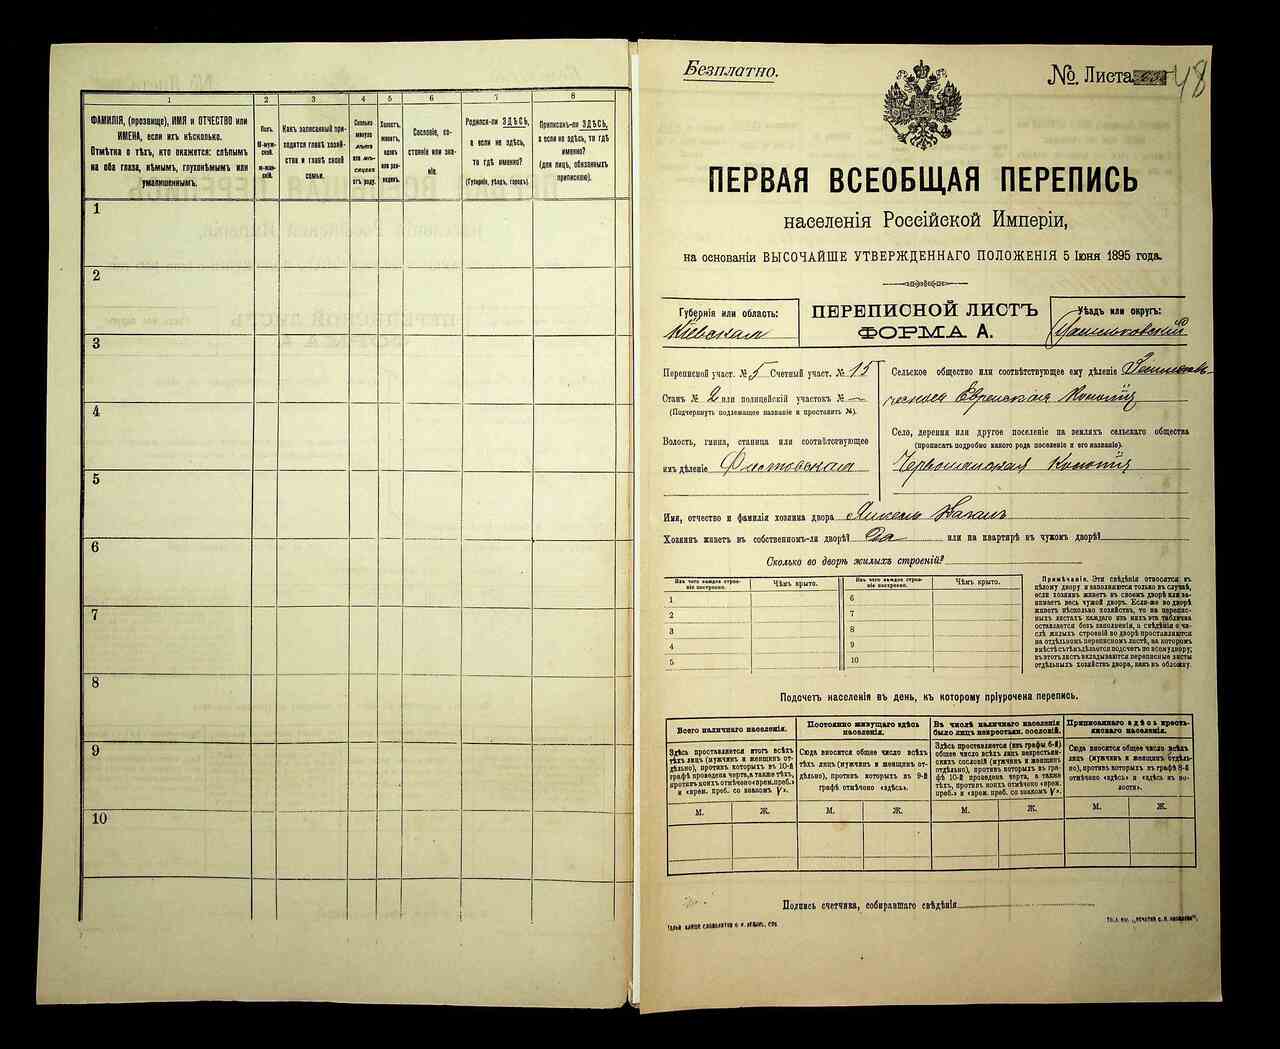 1 2 3 4 5 6 7 8
ФАМИЛІЯ, (прозвище), ИМЯ и ОТЧЕСТВО или
ИМЕНА, если ихъ нѣсколько.
Отмѣтка о тѣхъ, кто окажется: слѣпымъ
на оба глаза, нѣмымъ, глухонѣмымъ или
умалишеннымъ.
Полъ.
М-муж-
ской.
Ж-жен-
скій.
Какъ записанный при-
ходится главѣ хозяй-
ства и главѣ своей
семьи.
Сколько
минуло
лѣтъ
или мѣ-
сяцевъ
отъ роду.
Холостъ,
женатъ,
вдовъ
или раз-
веденъ.
Сословіе, со-
стояніе или зва-
ніе.
Родился-ли ЗДѢСЬ,
а если не здѣсь,
то гдѣ именно?
(Губернія, уѣздъ, городъ).
Приписанъ-ли ЗДѢСЬ,
а если не здѣсь, то гдѣ
именно?
(для лицъ, обязанныхъ
припискою).
1
2
3
4
5
6
7
8
9
10
Безплатно.
№ Листа
48
ПЕРВАЯ ВСЕОБЩАЯ ПЕРЕПИСЬ
населенія Россійской Имперіи,
на основаніи ВЫСОЧАЙШЕ УТВЕРЖДЕННАГО ПОЛОЖЕНІЯ 5 Іюня 1895 года.
Губернія или область:
Кіевская
ПЕРЕПИСНОЙ ЛИСТЪ
ФОРМА А.
Уѣздъ или округъ:
Васильковскій
Переписной участ. № 5 Счетный участ. № 15
Станъ № 2 или полицейскій участокъ № —
(Подчеркнуть подлежащее названіе и проставить №).
Волость, гмина, станица или соотвѣтствующее
имъ дѣленіе Фастовская
Сельское общество или соотвѣтствующее ему дѣленіе
Еврейская Колонія
Село, деревня или другое поселеніе на земляхъ сельскаго общества
(прописать подробно какого рода поселеніе и его названіе).
Червошанская Колонія
Имя, отчество и фамилія хозяина двора Янкель Каганъ
Хозяинъ живетъ въ собственномъ-ли дворѣ? Да или на квартирѣ въ чужомъ дворѣ?
Сколько во дворѣ жилыхъ строеній?
Изъ чего каждое строе-
ніе построено.
Чѣмъ крыто.
Изъ чего каждое строе-
ніе построено.
Чѣмъ крыто.
1
2
3
4
5
6
7
8
9
10
Примѣчаніе. Эти свѣдѣнія относятся къ
цѣлому двору и заполняются только въ случаѣ,
если хозяинъ живетъ въ своемъ дворѣ или за-
нимаетъ весь чужой дворъ. Если-же во дворѣ
живетъ нѣсколько хозяйствъ, то на перепис-
ныхъ листахъ каждаго изъ нихъ эта табличка
оставляется безъ заполненія, а свѣдѣнія о чи-
слѣ жилыхъ строеній во дворѣ проставляются
на отдѣльномъ переписномъ листѣ, на которомъ
вмѣстѣ съ тѣмъ дѣлается подсчетъ по всему двору;
въ этотъ листъ вкладываются переписные листы
отдѣльныхъ хозяйствъ двора, какъ въ обложку.
Подсчетъ населенія въ день, къ которому пріурочена перепись.
Всего наличнаго населенія.
Здѣсь проставляется итогъ всѣхъ
тѣхъ лицъ (мужчинъ и женщинъ от-
дѣльно), противъ которыхъ въ 10-й
графѣ проведена черта, а также тѣхъ,
противъ коихъ отмѣчено «врем. преб.»
и «врем. преб. со знакомъ V».
Постоянно живущаго здѣсь
населенія.
Сюда вносится общее число всѣхъ
тѣхъ лицъ (мужчинъ и женщинъ от-
дѣльно), противъ которыхъ въ 9-й
графѣ отмѣчено «здѣсь».
Въ числѣ наличнаго населенія
было лицъ некрестьян. сословій.
Здѣсь проставляется (изъ графы 6-й)
общее число всѣхъ лицъ некрестьян-
скихъ сословій (мужчинъ и женщинъ
отдѣльно), противъ которыхъ въ гра-
фѣ 10-й проведена черта, а также
тѣхъ, противъ коихъ отмѣчено «врем.
преб.» и «врем. преб. со знакомъ V».
Приписаннаго здѣсь кресть-
янскаго населенія.
Сюда вносится общее число всѣхъ
лицъ (мужчинъ и женщинъ отдѣль-
но), противъ которыхъ въ графѣ 8-й
отмѣчено «здѣсь» и «здѣсь къ во-
лости».
М. Ж. М. Ж. М. Ж. М. Ж.
Подпись счетчика, собиравшаго свѣдѣнія